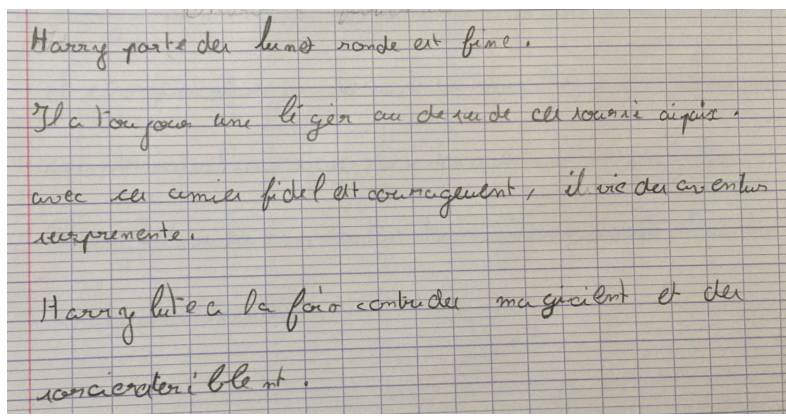 Harry porte des lunet ronde est fine.
Il a toujours une ligér au desu de ces soursi aipais.
avec ces amies fidel est couragement, il vie des aventur
surprenente.
Harry lute a la fois contre des magicient et des
sorciersteriblent.